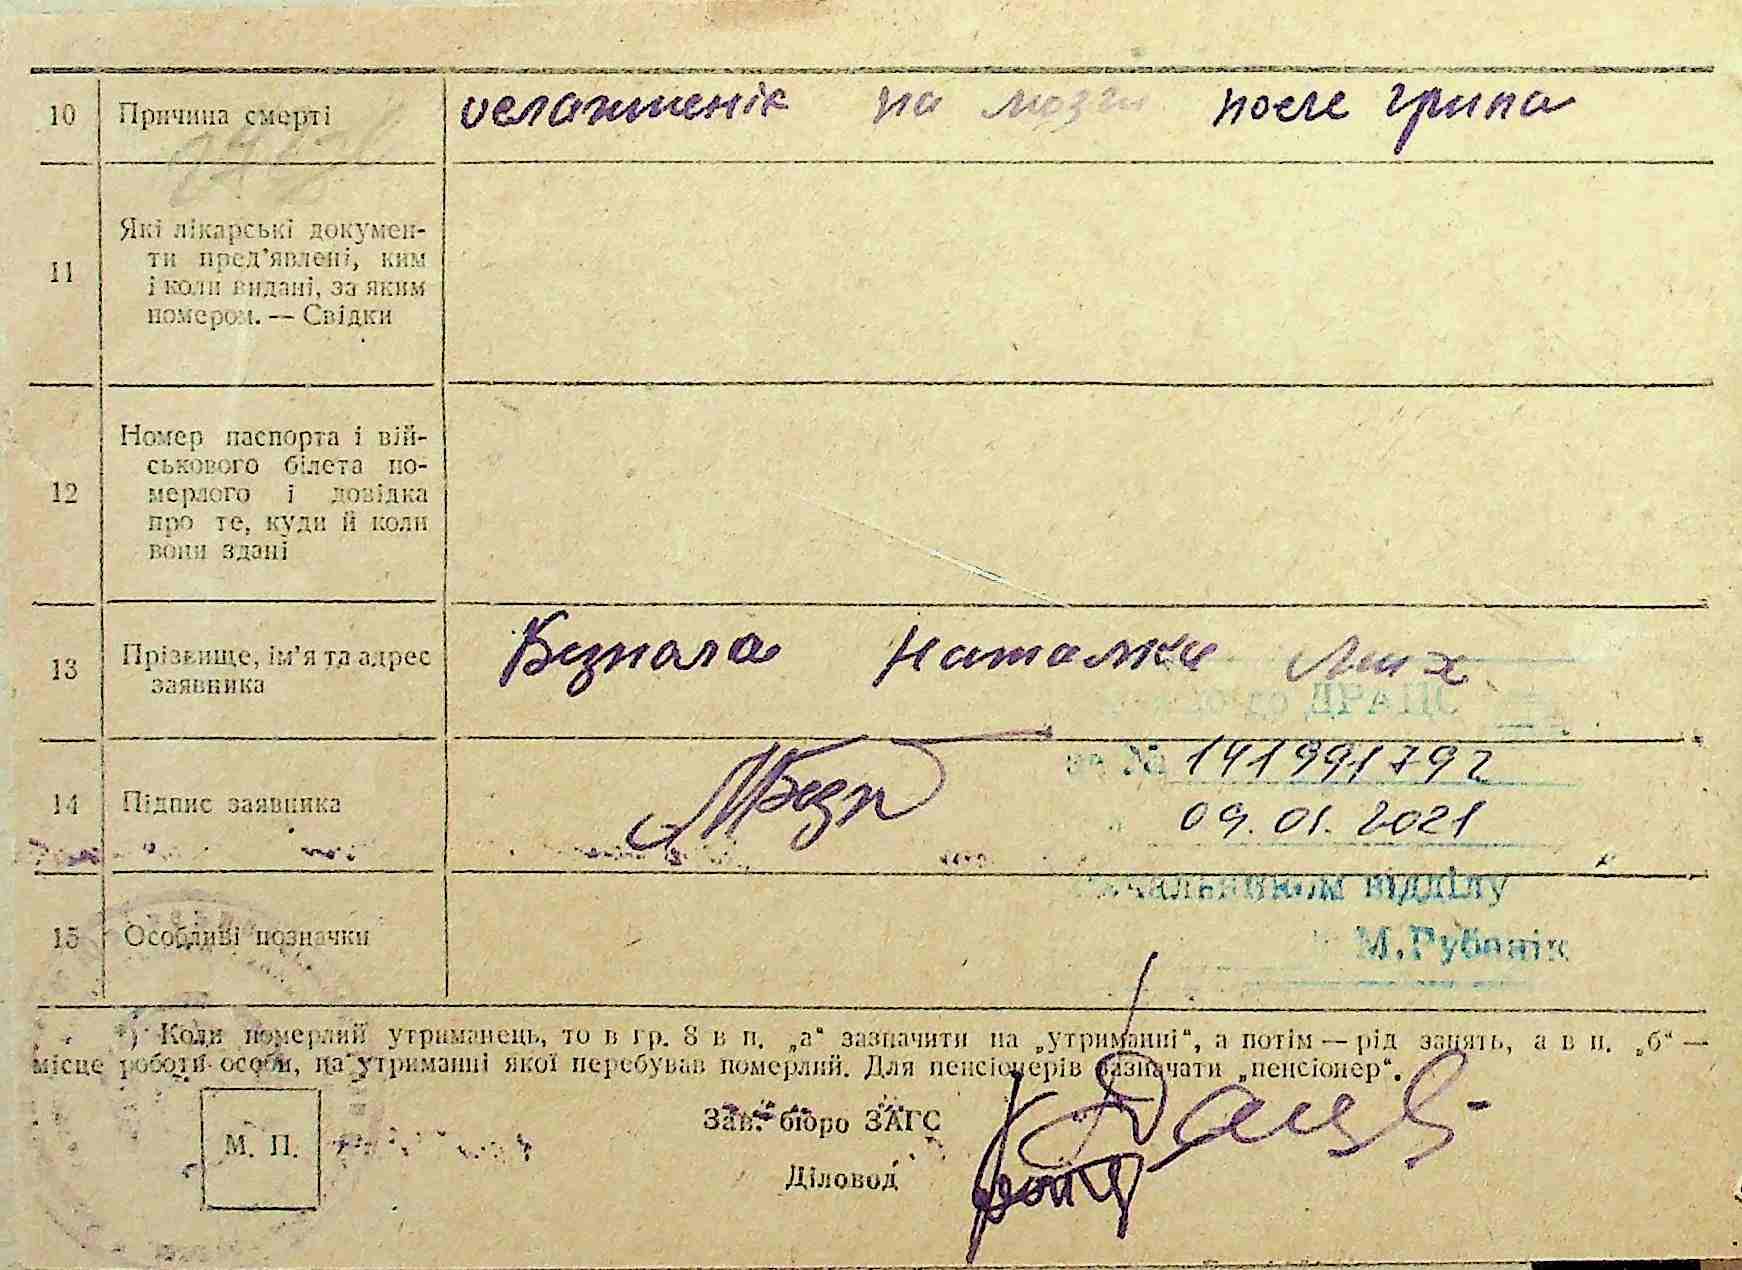 10 Причина смерті
ослажненік на мозги после грипа
11 Які лікарські докумен-
ти пред'явлені, ким
і коли видані, за яким
номером. — Свідки
12 Номер паспорта і вій-
ськового білета по-
мерлого і довідка
про те, куди й коли
вони здані
13 Прізвище, ім'я та адрес
заявника
Наталка Мих
до ДРАЦС
за № 141991792
09.01.2021
14 Підпис заявника
15 Особливі позначки
начальником відділу
М.Рубанік
*) Коли померлий утриманець, то в гр. 8 в п. „а“ зазначити на „утриманні“, а потім — рід занять, а в п. „б“ —
місце роботи особи, на утриманні якої перебував померлий. Для пенсіонерів зазначати „пенсіонер“.
М. П.
Зав. бюро ЗАГС
Діловод